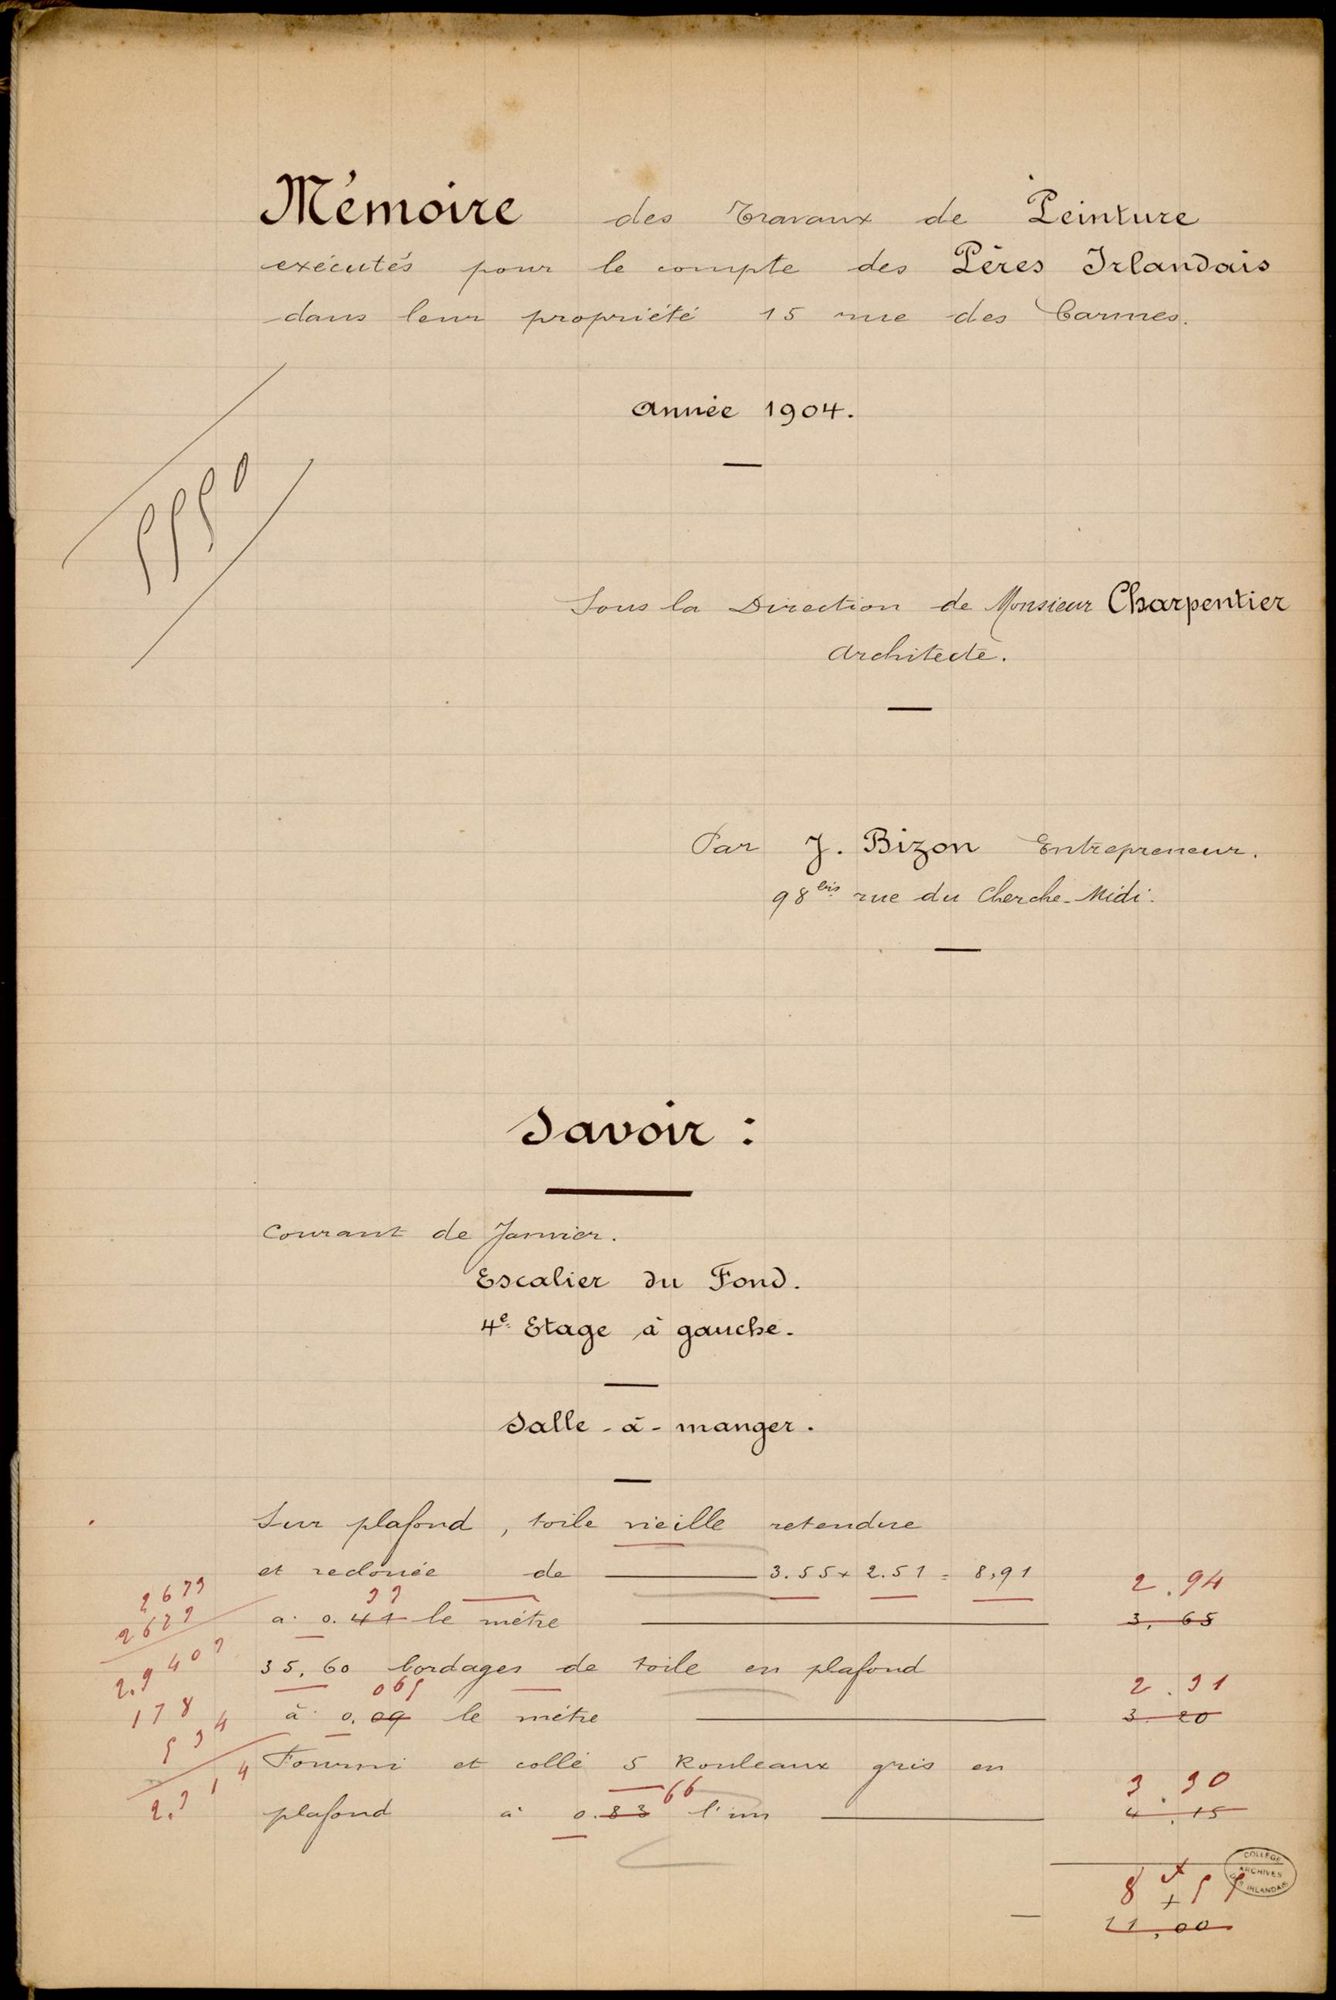 Mémoire des Travaux de Peinture
exécutés pour le compte des Pères Irlandais
dans leur propriété 15 rue des Carmes.
Année 1904.
5550
Sous la Direction de Monsieur Charpentier
Architecte.
Par J. Bizon Entrepreneur.
98 bis rue du Cherche-Midi.
Savoir :
Courant de Janvier.
Escalier du Fond.
4e Etage à gauche.
Salle-à-manger.
Sur plafond, toile vieille retendue
et reclouée de 3.55 x 2.51 = 8,91 2.94
33
2673
2673
a 0.41 le mètre 3.65
2.9403
35,60 bordages de toile en plafond
065 2.31
178
à 0.09 le mètre 3.20
534
Fourni et collé 5 Rouleaux gris en
2.314
66 3.30
plafond à 0.83 l'un 4.15
8 55
11,00
COLLEGE
ARCHIVES
DES IRLANDAIS